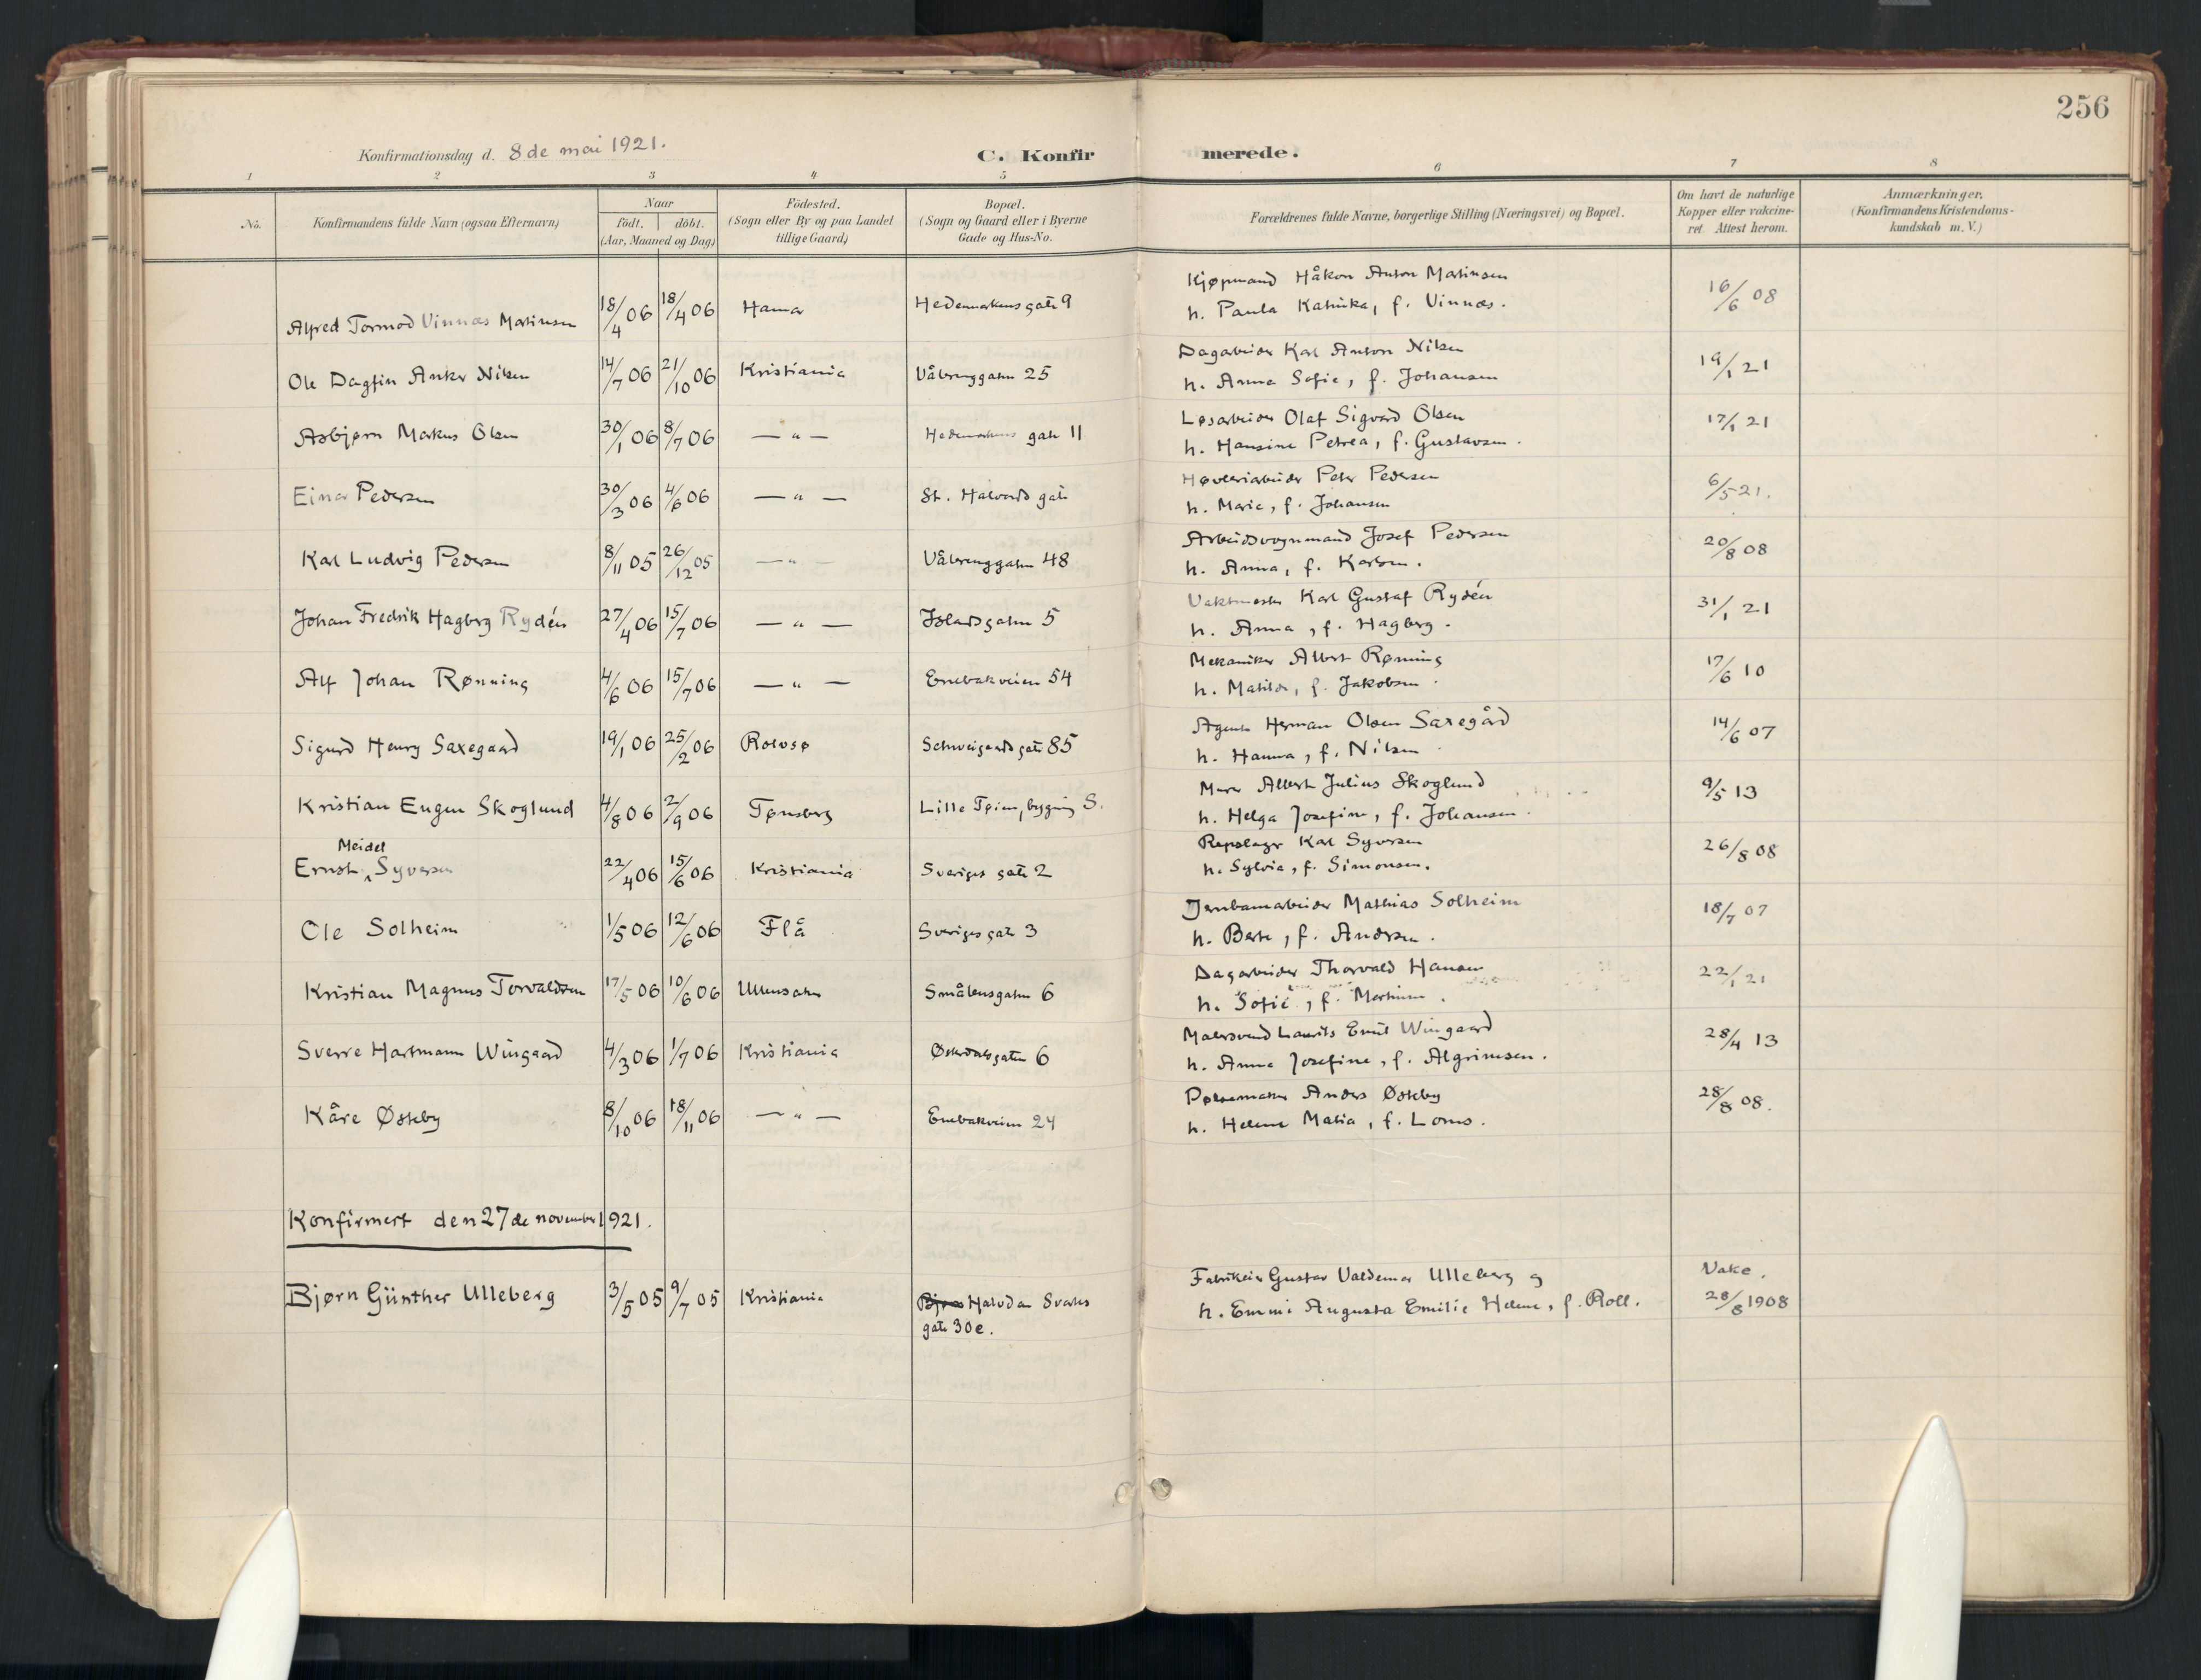 256
Konfirmationsdag d. 8 de mai 1921.
C. Konfir merede.
1 2 3 4 5 6 7 8
No.
Konfirmandens fulde Navn (ogsaa Efternavn)
Naar
födt. döbt.
(Aar, Maaned og Dag)
Födested.
(Sogn eller By og paa Landet
tillige Gaard)
Bopæl.
(Sogn og Gaard eller i Byerne
Gade og Hus-No.
Forældrenes fulde Navne, borgerlige Stilling (Næringsvei) og Bopæl.
Om havt de naturlige
Kopper eller vakcine-
ret. Attest herom.
Anmærkninger,
(Konfirmandens Kristendoms-
kundskab m. V.)
Alfred Tormod Vinnæs Martinsen 18/4 06 18/4 06 Hamar Hedemarkens gate 9 Kjøpmand Håkon Anton Martinsen 16/6 08
h. Paula Katinka, f. Vinnæs.
Ole Dagfin Anker Nilsen 14/7 06 21/10 06 Kristiania Vålerenggaten 25 Dagarbeider Karl Anton Nilsen 19/1 21
h. Anna Sofie, f. Johansen
Asbjørn Markus Olsen 30/1 06 8/7 06 — " — Hedemarkens gate 11 Løsarbeider Olaf Sigvard Olsen 17/1 21
h. Hansine Petrea, f. Gustavsen.
Einar Pedersen 30/3 06 4/6 06 — " — St. Halvards gate Høvleriarbeider Peter Pedersen 6/5 21.
h. Marie, f. Johansen
Karl Ludvig Pedersen 8/11 05 26/12 05 — " — Vålerenggaten 48 Arbeidsvognmand Josef Pedersen 20/8 08
h. Anna, f. Karlsen.
Johan Fredrik Hagberg Rydén 27/4 06 15/7 06 — " — Islandsgaten 5 Vaktmester Karl Gustaf Rydén 31/1 21
h. Anna, f. Hagberg.
Alf Johan Rønning 4/6 06 15/7 06 — " — Enebakveien 54 Mekaniker Albert Rønning 17/6 10
h. Matilde, f. Jakobsen
Sigurd Henry Saxegaard 19/1 06 25/2 06 Rolvsø Schweigaards gate 85 Agent Herman Olsen Saxegård 14/6 07
h. Hanna, f. Nilsen
Kristian Eugen Skoglund 4/8 06 2/9 06 Tønsberg Lille Tøien, bygning S. Murer Albert Julius Skoglund 9/5 13
h. Helga Josefine, f. Johansen.
Meidel
Ernst Syversen 22/4 06 15/6 06 Kristiania Sveriges gate 2 Repslager Karl Syversen 26/8 08
h. Sylvia, f. Simonsen.
Ole Solheim 1/5 06 12/6 06 Flå Sveriges gate 3 Jernbanearbeider Mathias Solheim 18/7 07
h. Berte, f. Andersen.
Kristian Magnus Torvaldsen 17/5 06 10/6 06 Ullensaker Smålensgaten 6 Dagarbeider Thorvald Hansen 22/1 21
h. Sofie, f. Martinsen.
Sverre Hartmann Wingaard 4/3 06 1/7 06 Kristiania Østerdalsgaten 6 Malersvend Laurits Emil Wingaard 28/4 13
h. Anna Josefine, f. Algrimsen.
Kåre Østeby 8/10 06 18/11 06 — " — Enebakveien 24 Pølsemaker Anders Østeby 28/8 08.
h. Helene Matia, f. Loms.
Konfirmert den 27 de november 1921.
Bjørn Günther Ulleberg 3/5 05 9/7 05 Kristiania Halvdan Svartes Fabrikeier Gustav Valdemar Ulleberg og Vakc.
gate 30 e. h. Emmi Augusta Emilie Helene, f. Roll. 28/8 1908